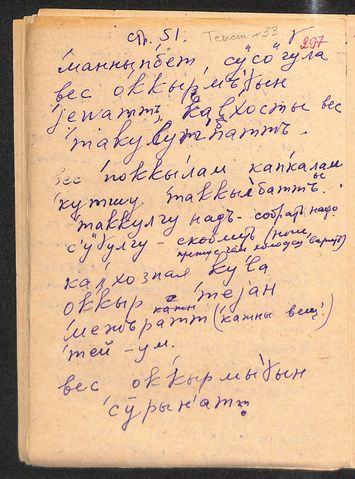 ср. 51. Текст №33
207
маннып̄бет, сӯсо̄гула
вес о̄ккыр мыɣын
jеwатт, калхосты вес
такувутпаттъ.
вес поккылам капкалам
кутшу таккылбатты.
таккулгу надъ - собрать надо
сӯɣулгу - скоблить (ноги,
прежде чем холодец варить)
калхозная кула
оккыр тејан
межъратт (кажны вещь)
тей - ум.
вес оккыр мыɣын
сӯрынатт